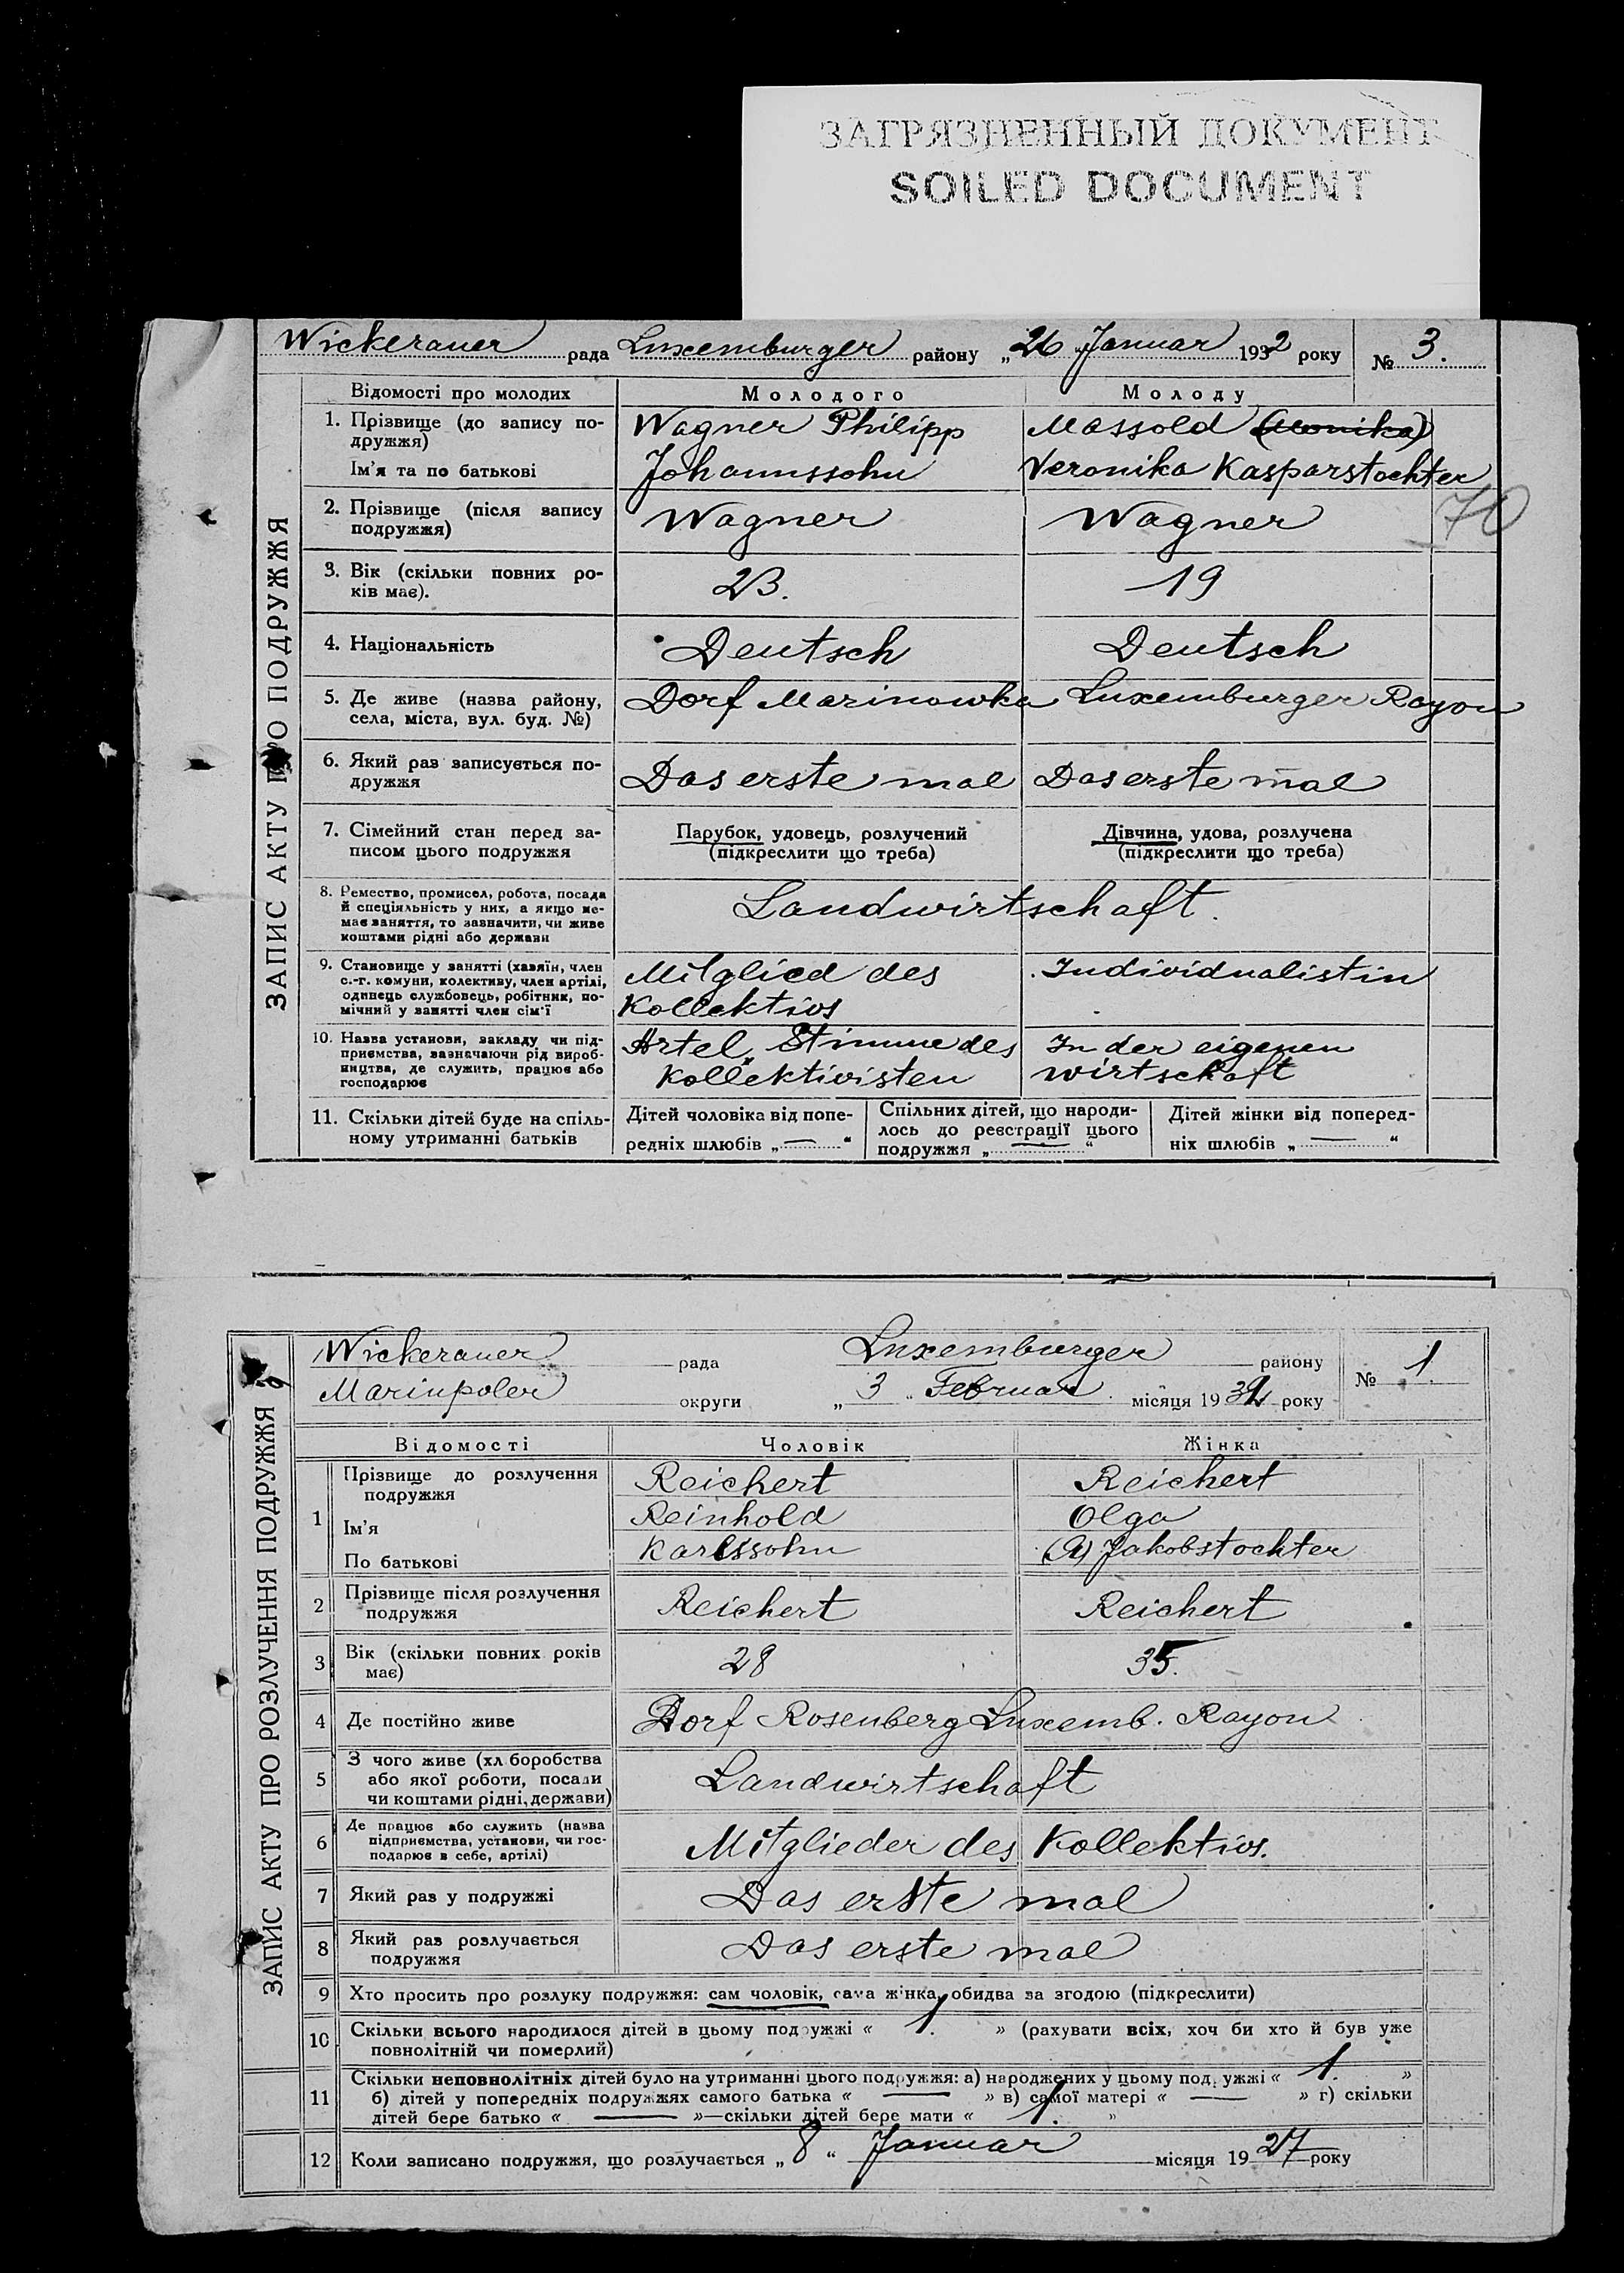 ЗАГРЯЗНЕННЫЙ ДОКУМЕНТ
SOILED DOCUMENT
Wickerauer рада Luxemburger району „26 Januar 1932 року № 3.
ЗАПИС АКТУ ПРО ПОДРУЖЖЯ
Відомості про молодих Молодого Молоду
1. Прізвище (до запису по- Wagner Philipp Massold (Monika)
дружжя)
Ім’я та по батькові Johannssohn Veronika Kasparstochter
70
2. Прізвище (після запису Wagner Wagner
подружжя)
3. Вік (скільки повних ро- 23. 19
ків має).
4. Національність Deutsch Deutsch
5. Де живе (назва району, Dorf Marinowka Luxemburger Rayon
села, міста, вул. буд. №)
6. Який раз записується по- Das erste mal Das erste mal
дружжя
7. Сімейний стан перед за- Парубок, удовець, розлучений Дівчина, удова, розлучена
писом цього подружжя (підкреслити що треба) (підкреслити що треба)
8. Ремество, промисел, робота, посада Landwirtschaft.
й спеціяльність у них, а якщо не-
має заняття, то зазначити, чи живе
коштами рідні або держави
9. Становище у занятті (хазяїн, член Mitglied des Individualistin
с.-г. комуни, колективу, член артілі, Kollektivs
одинець службовець, робітник, по-
мічний у занятті член сім’ї
10. Назва установи, закладу чи під- Artel „Stimme des In der eigenen
приємства, зазначаючи рід вироб- Kollektivisten wirtschaft
ництва, де служить, працює або
господарює
11. Скільки дітей буде на спіль- Дітей чоловіка від попе- Спільних дітей, що народи- Дітей жінки від поперед-
ному утриманні батьків редніх шлюбів „—“ лось до реєстрації цього ніх шлюбів „—“
подружжя „—“
ЗАПИС АКТУ ПРО РОЗЛУЧЕННЯ ПОДРУЖЖЯ
Wickerauer рада Luxemburger району № 1.
Mariupoler округи „3„ Februar. місяця 1932 року
Відомості Чоловік Жінка
1 Прізвище до розлучення Reichert Reichert
подружжя
Ім’я Reinhold Olga
По батькові Karlssohn (A) Jakobstochter
2 Прізвище після розлучення Reichert Reichert
подружжя
3 Вік (скільки повних років 28 35.
має)
4 Де постійно живе Dorf Rosenberg Luxemb. Rayon
5 З чого живе (хл боробства Landwirtschaft
або якої роботи, посади
чи коштами рідні, держави)
6 Де працює або служить (назва Mitglieder des Kollektivs.
підприємства, установи, чи гос-
подарює в себе, артілі)
7 Який раз у подружжі Das erste mal
8 Який раз розлучається Das erste mal
подружжя
9 Хто просить про розлуку подружжя: сам чоловік, сама жінка, обидва за згодою (підкреслити)
10 Скільки всього народилося дітей в цьому подружжі « 1. » (рахувати всіх, хоч би хто й був уже
повнолітній чи померлий)
11 Скільки неповнолітніх дітей було на утриманні цього подружжя: а) народжених у цьому подружжі « 1. »
б) дітей у попередніх подружжях самого батька « — » в) самої матері « — » г) скільки
дітей бере батько « — »—скільки дітей бере мати « 1. »
12 Коли записано подружжя, що розлучається „8“ Januar місяця 1927 року